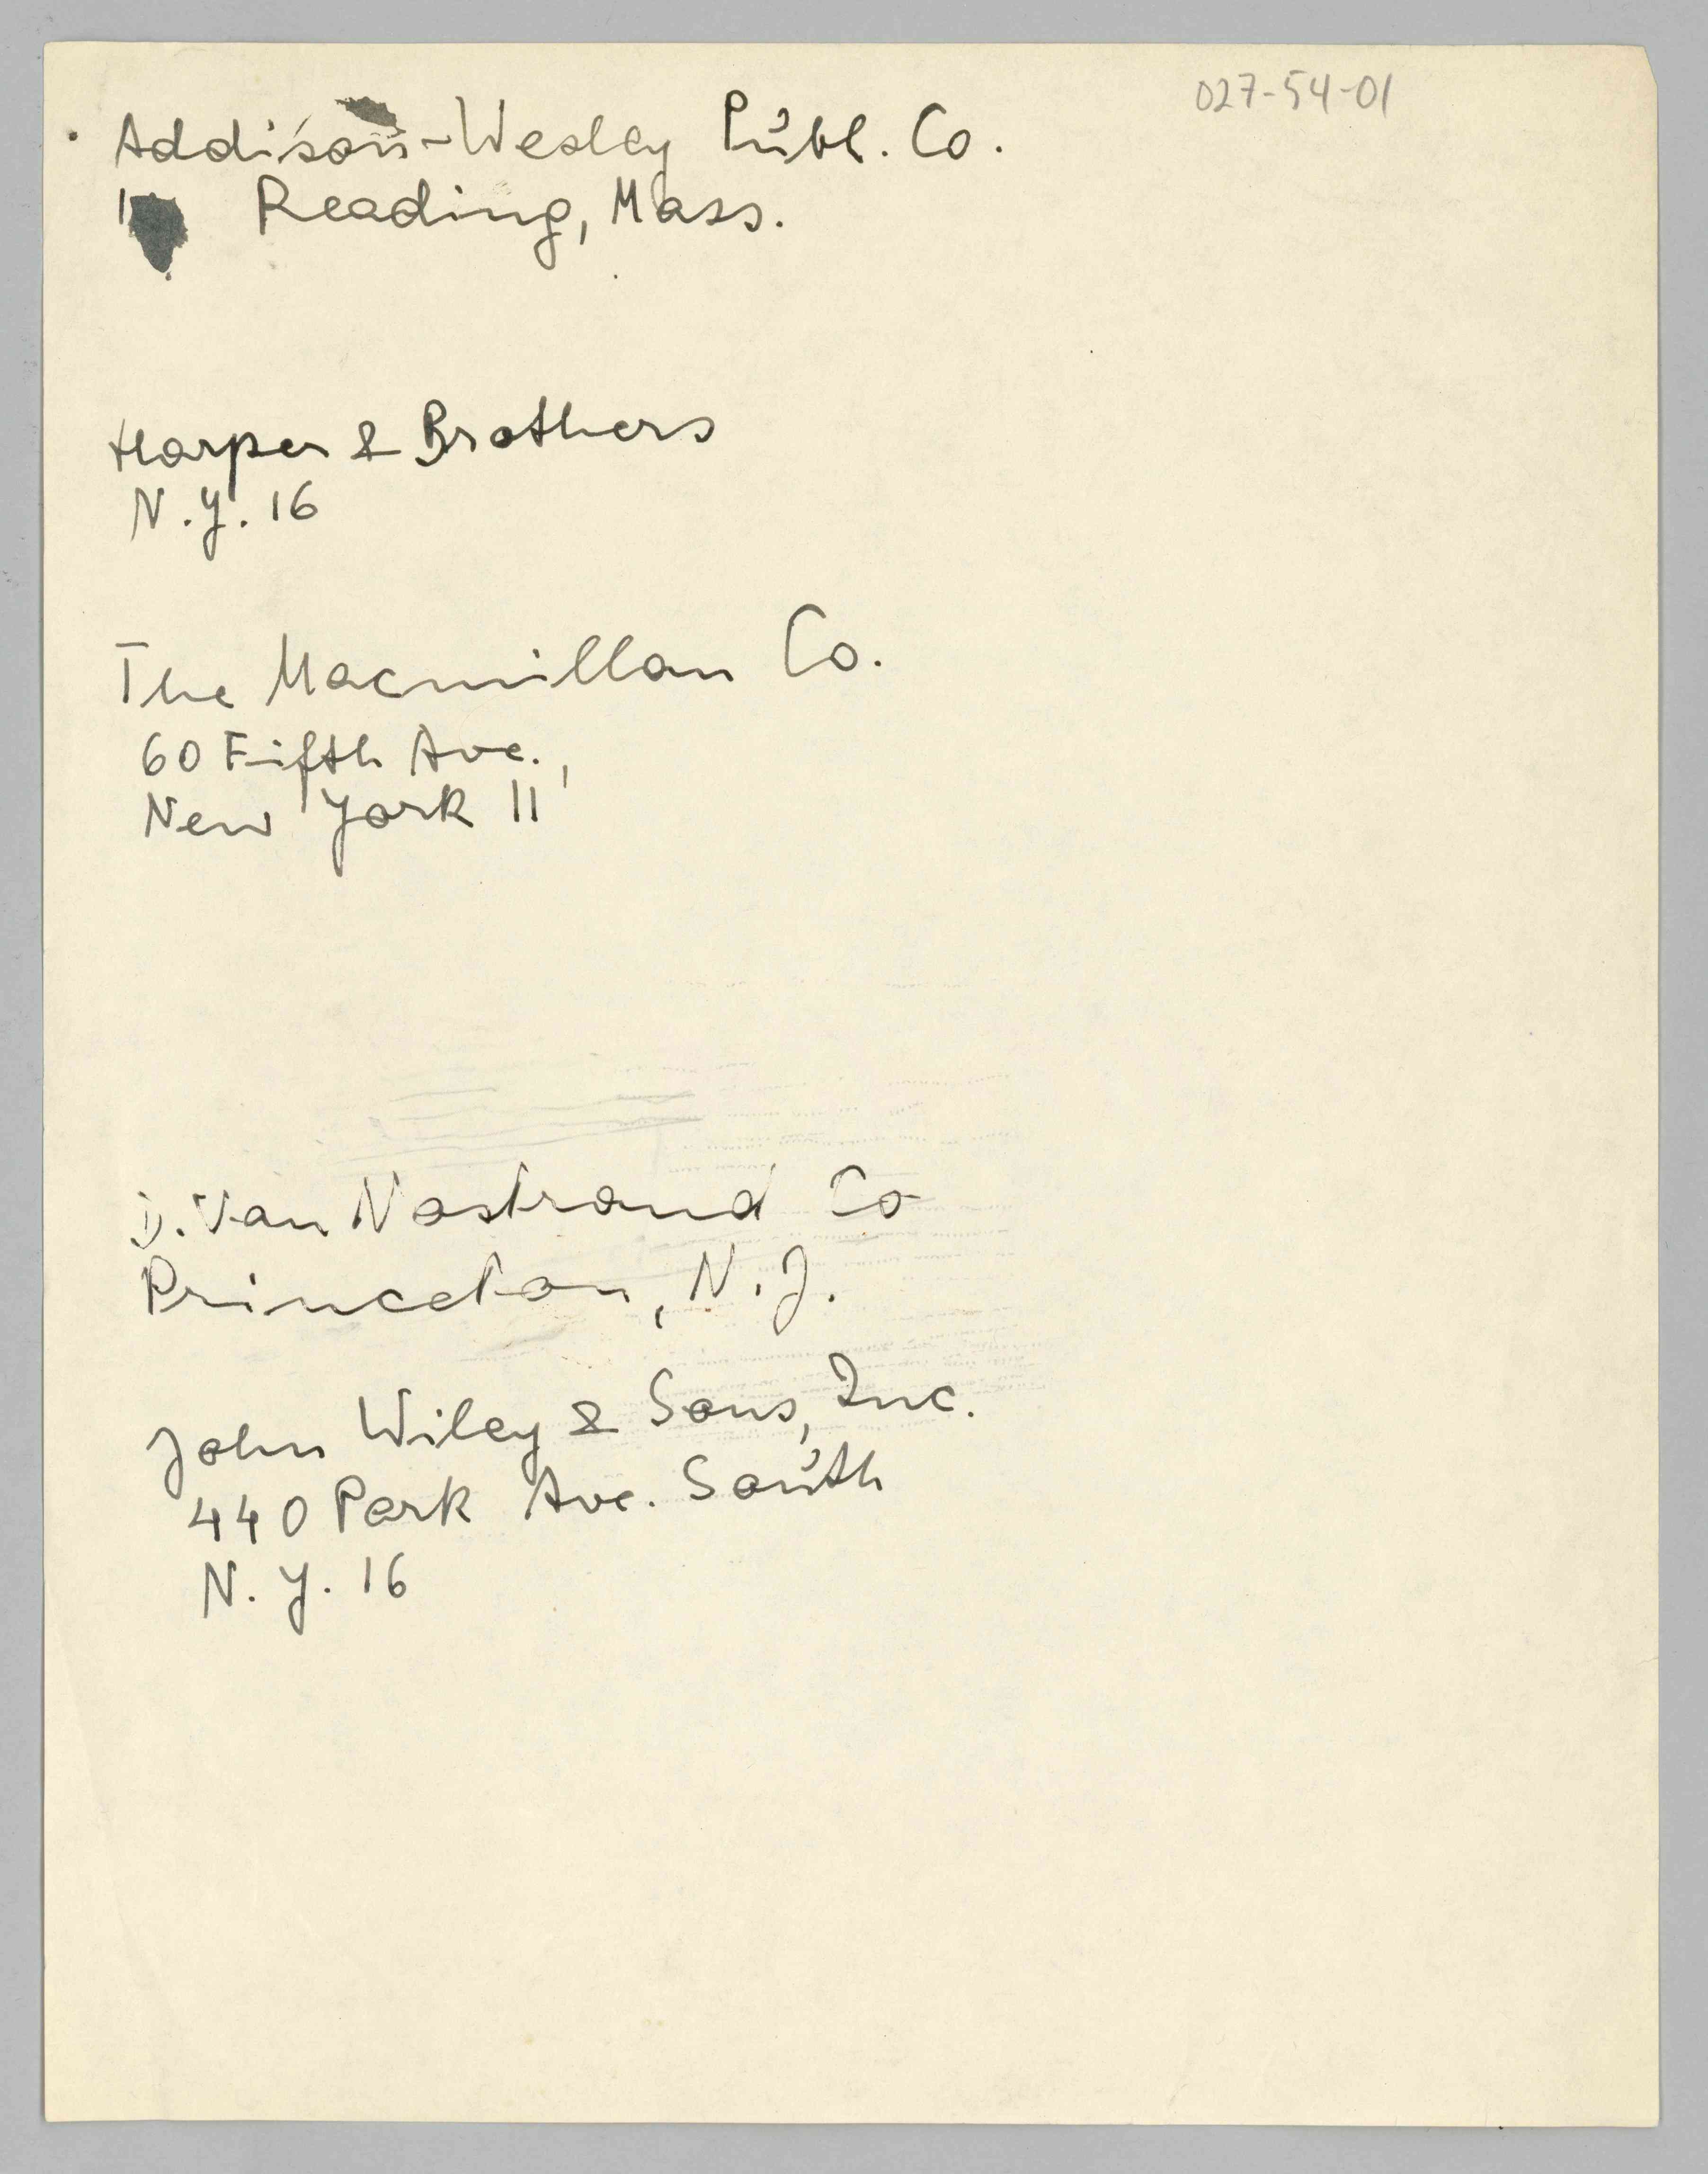 027-54-01
Addison-Wesley Publ. Co.
Reading, Mass.
Harper & Brothers
N.Y. 16
The Macmillan Co.
60 Fifth Ave.,
New York 11
D. Van Nostrand Co
Princeton, N.J.
John Wiley & Sons, Inc.
440 Park Ave. South
N.Y. 16